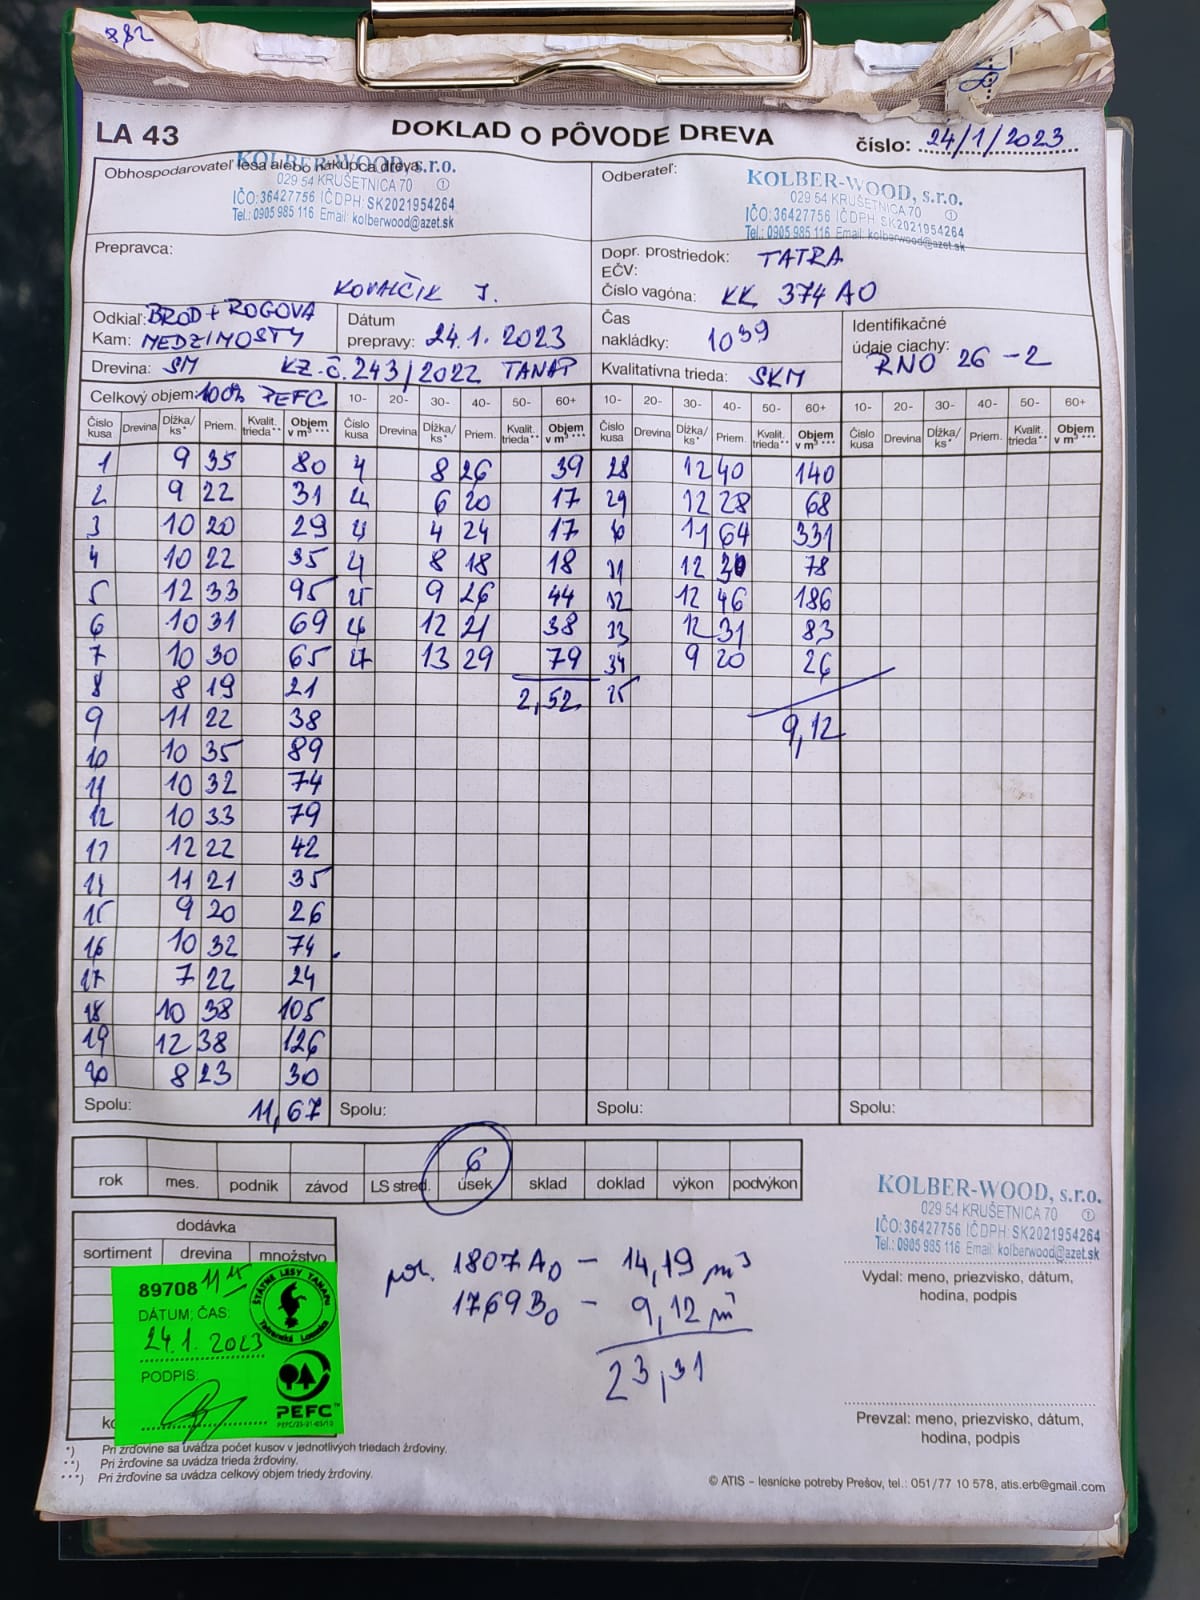 882
LA 43
DOKLAD O PÔVODE DREVA
číslo: 24/1/2023
Obhospodarovateľ lesa alebo nákupca dreva:
KOLBER-WOOD, s.r.o.
029 54 KRUŠETNICA 70
IČO:36427756 IČDPH SK2021954264
Tel.: 0905 985 116 Email: kolberwood@azet.sk
Odberateľ:
KOLBER-WOOD, s.r.o.
029 54 KRUŠETNICA 70
IČO:36427756 IČDPH SK2021954264
Tel.: 0905 985 116 Email: kolberwood@azet.sk
Prepravca:
KOVALČIK J.
Dopr. prostriedok: TATRA
EČV:
Číslo vagóna: KK 374 AO
Odkiaľ: BROD + ROGOVA
Kam: MEDZIMOSTY
Dátum
prepravy: 24.1. 2023
Čas
nakládky: 10 39
Identifikačné
údaje ciachy:
RNO 26 -2
Drevina: SM KZ.č. 243/2022 TANAP
Kvalitatívna trieda: SKM
Celkový objem: 100% PEFC 10- 20- 30- 40- 50- 60+ 10- 20- 30- 40- 50- 60+ 10- 20- 30- 40- 50- 60+
Číslo kusa Drevina Dĺžka/ ks* Priem. Kvalit. trieda** Objem v m³ *** Číslo kusa Drevina Dĺžka/ ks* Priem. Kvalit. trieda** Objem v m³ *** Číslo kusa Drevina Dĺžka/ ks* Priem. Kvalit. trieda** Objem v m³ *** Číslo kusa Drevina Dĺžka/ ks* Priem. Kvalit. trieda** Objem v m³ ***
1 9 35 80 8 26 39 28 12 40 140
2 9 22 31 6 20 17 29 12 28 68
3 10 20 29 4 24 17 11 64 331
4 10 22 35 8 18 18 31 12 30 78
5 12 33 95 25 9 26 44 32 12 46 186
6 10 31 69 26 12 21 38 33 12 31 83
7 10 30 65 27 13 29 79 34 9 20 26
8 8 19 21 2,52 25
9 11 22 38 9,12
10 10 35 89
11 10 32 74
12 10 33 79
13 12 22 42
14 11 21 35
15 9 20 26
16 10 32 74
17 7 22 24
18 10 38 105
19 12 38 126
20 8 23 30
Spolu: 11,67 Spolu: Spolu: Spolu:
6
rok mes. podnik závod LS stred. úsek sklad doklad výkon podvýkon
KOLBER-WOOD, s.r.o.
029 54 KRUŠETNICA 70
IČO:36427756 IČDPH SK2021954264
Tel.: 0905 985 116 Email: kolberwood@azet.sk
dodávka
sortiment drevina množstvo
89708 11 15
DÁTUM; ČAS:
24.1. 2023
PODPIS:
ŠTÁTNE LESY TANAPu
Tatranská Lomnica
PEFC™
por. 1807A0 – 14,19 m3
1769B0 – 9,12 m3
23,31
Vydal: meno, priezvisko, dátum,
hodina, podpis
Prevzal: meno, priezvisko, dátum,
hodina, podpis
*) Pri žrďovine sa uvádza počet kusov v jednotlivých triedach žrďoviny.
**) Pri žrďovine sa uvádza trieda žrďoviny.
***) Pri žrďovine sa uvádza celkový objem triedy žrďoviny.
© ATIS – lesnícke potreby Prešov, tel.: 051/77 10 578, atis.erb@gmail.com